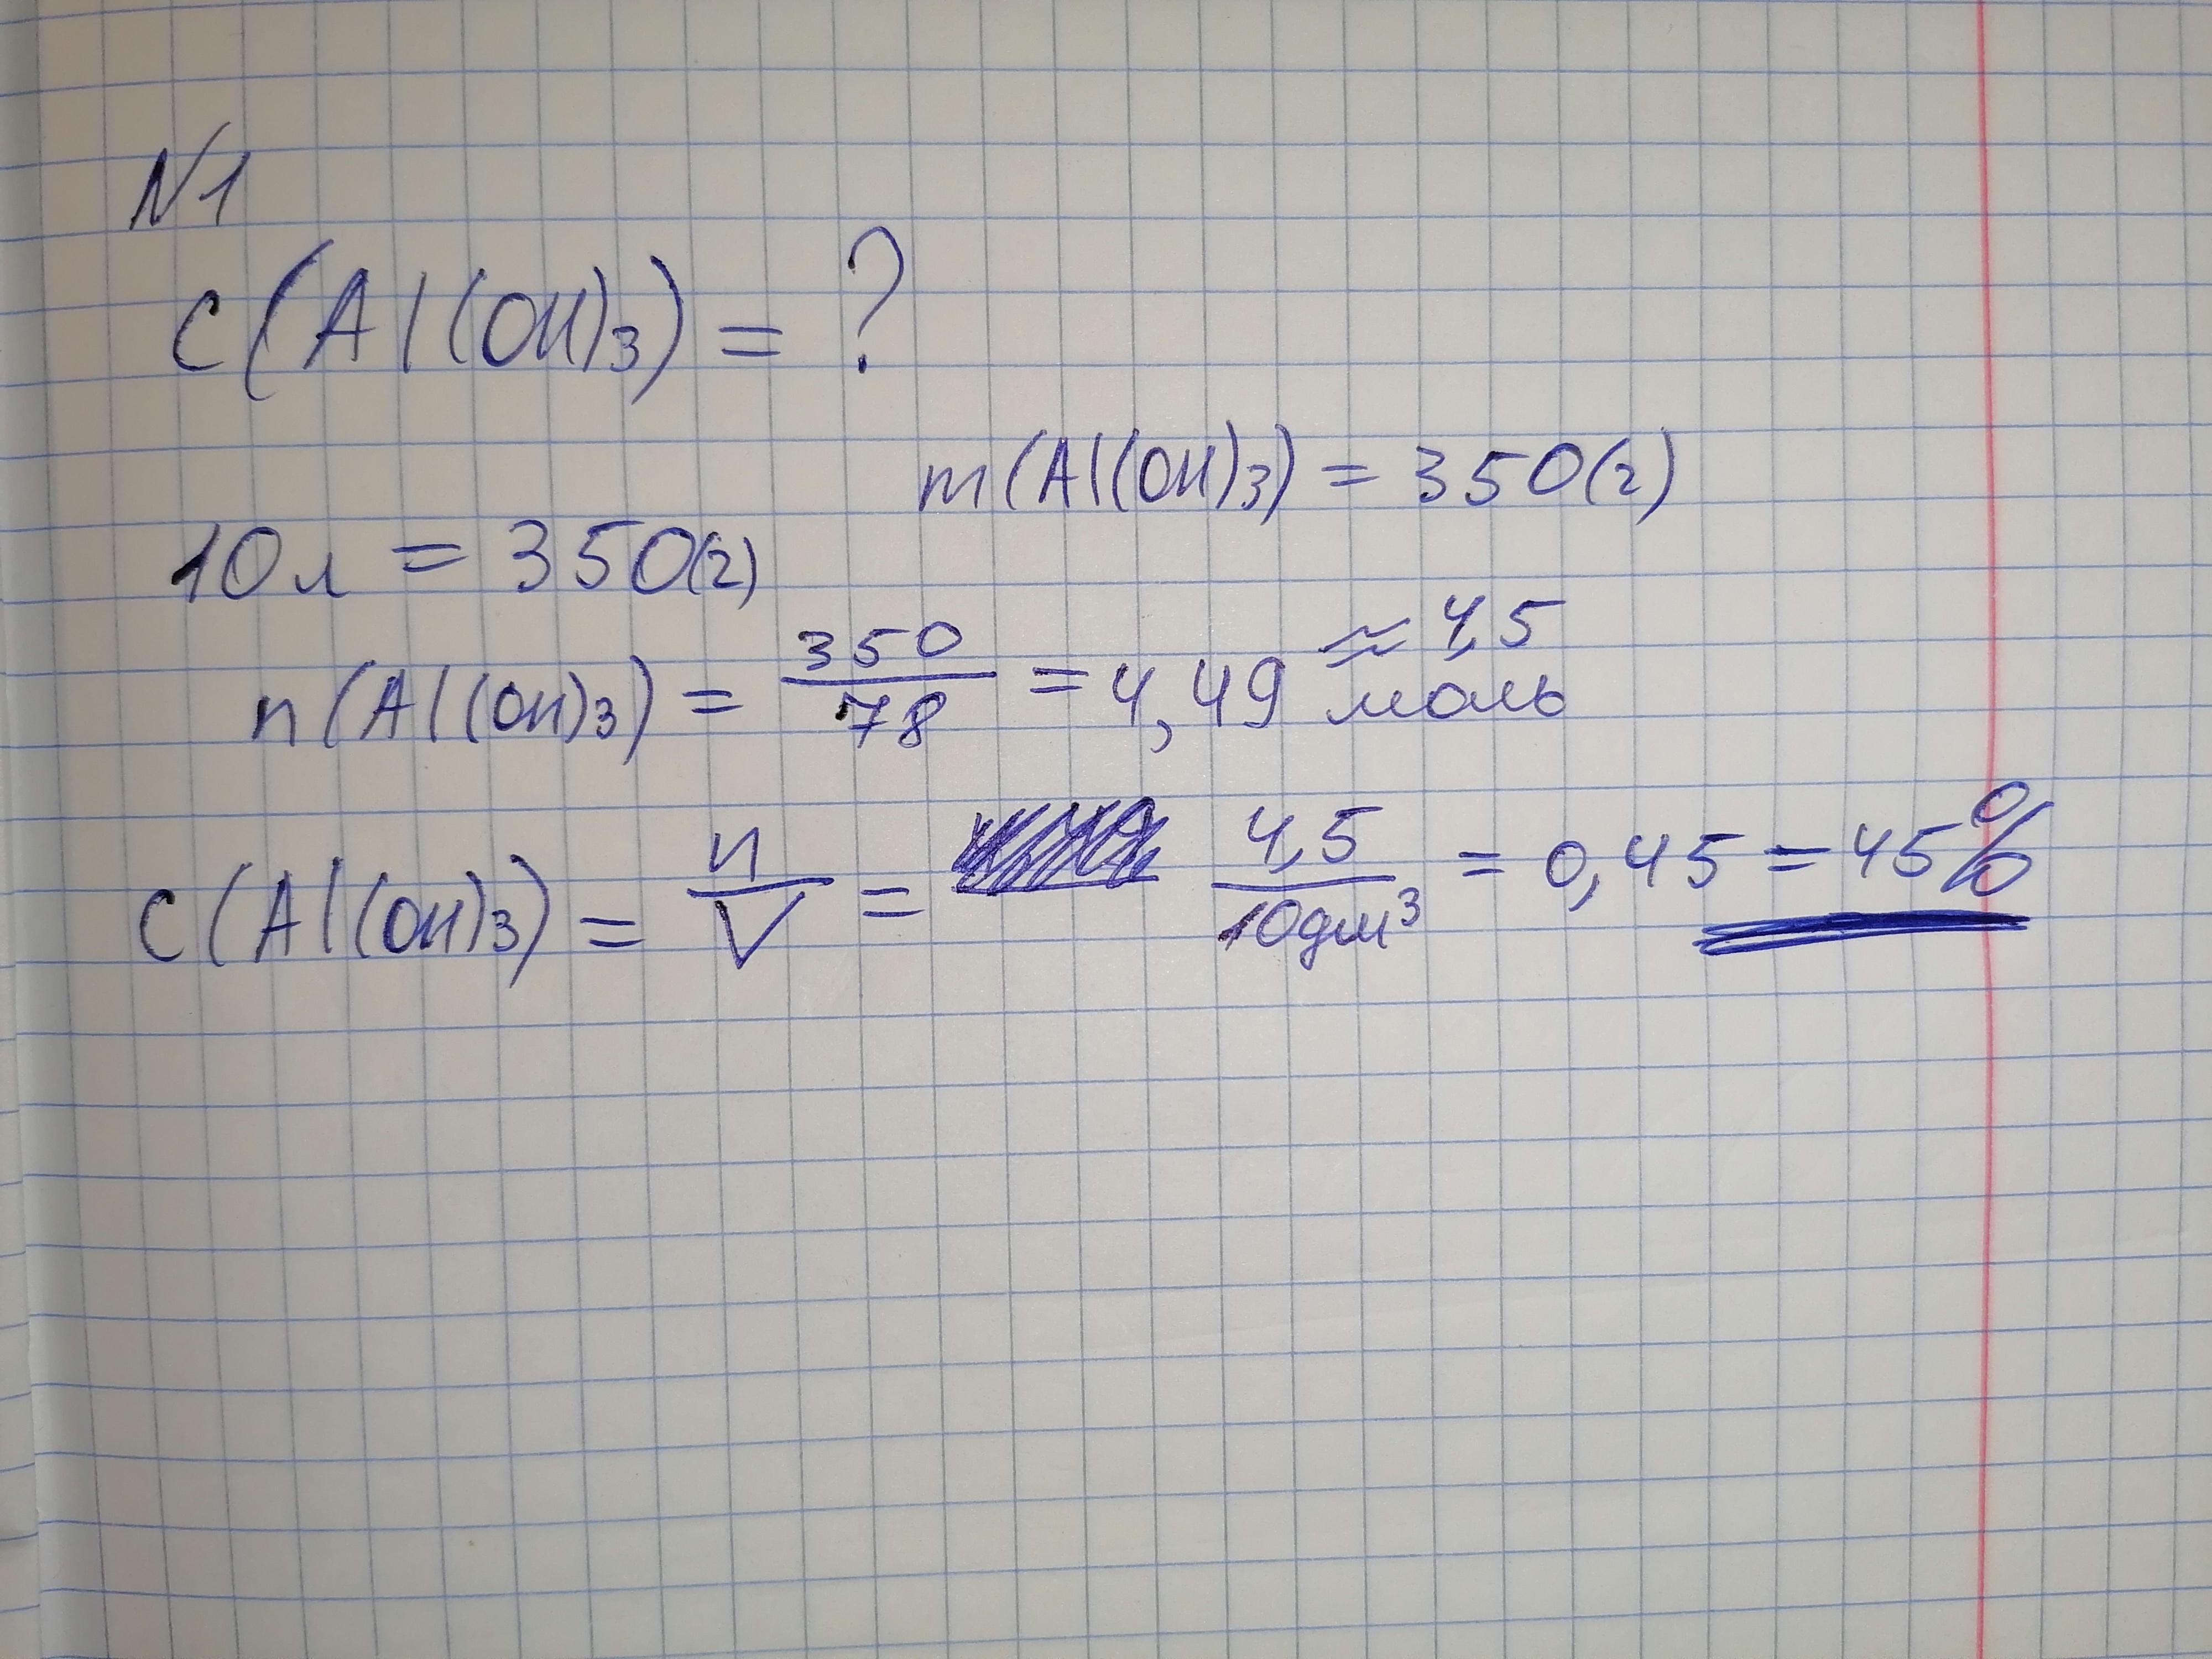 N1
C(Al(OH)₃) = ?
m(Al(OH)₃) = 350(г)
10л = 350(г)
n(Al(OH)₃) = 350/78 = 4,49 ≈ 4,5 моль
C(Al(OH)₃) = n/V = 4,5/10дм³ = 0,45 = 45%